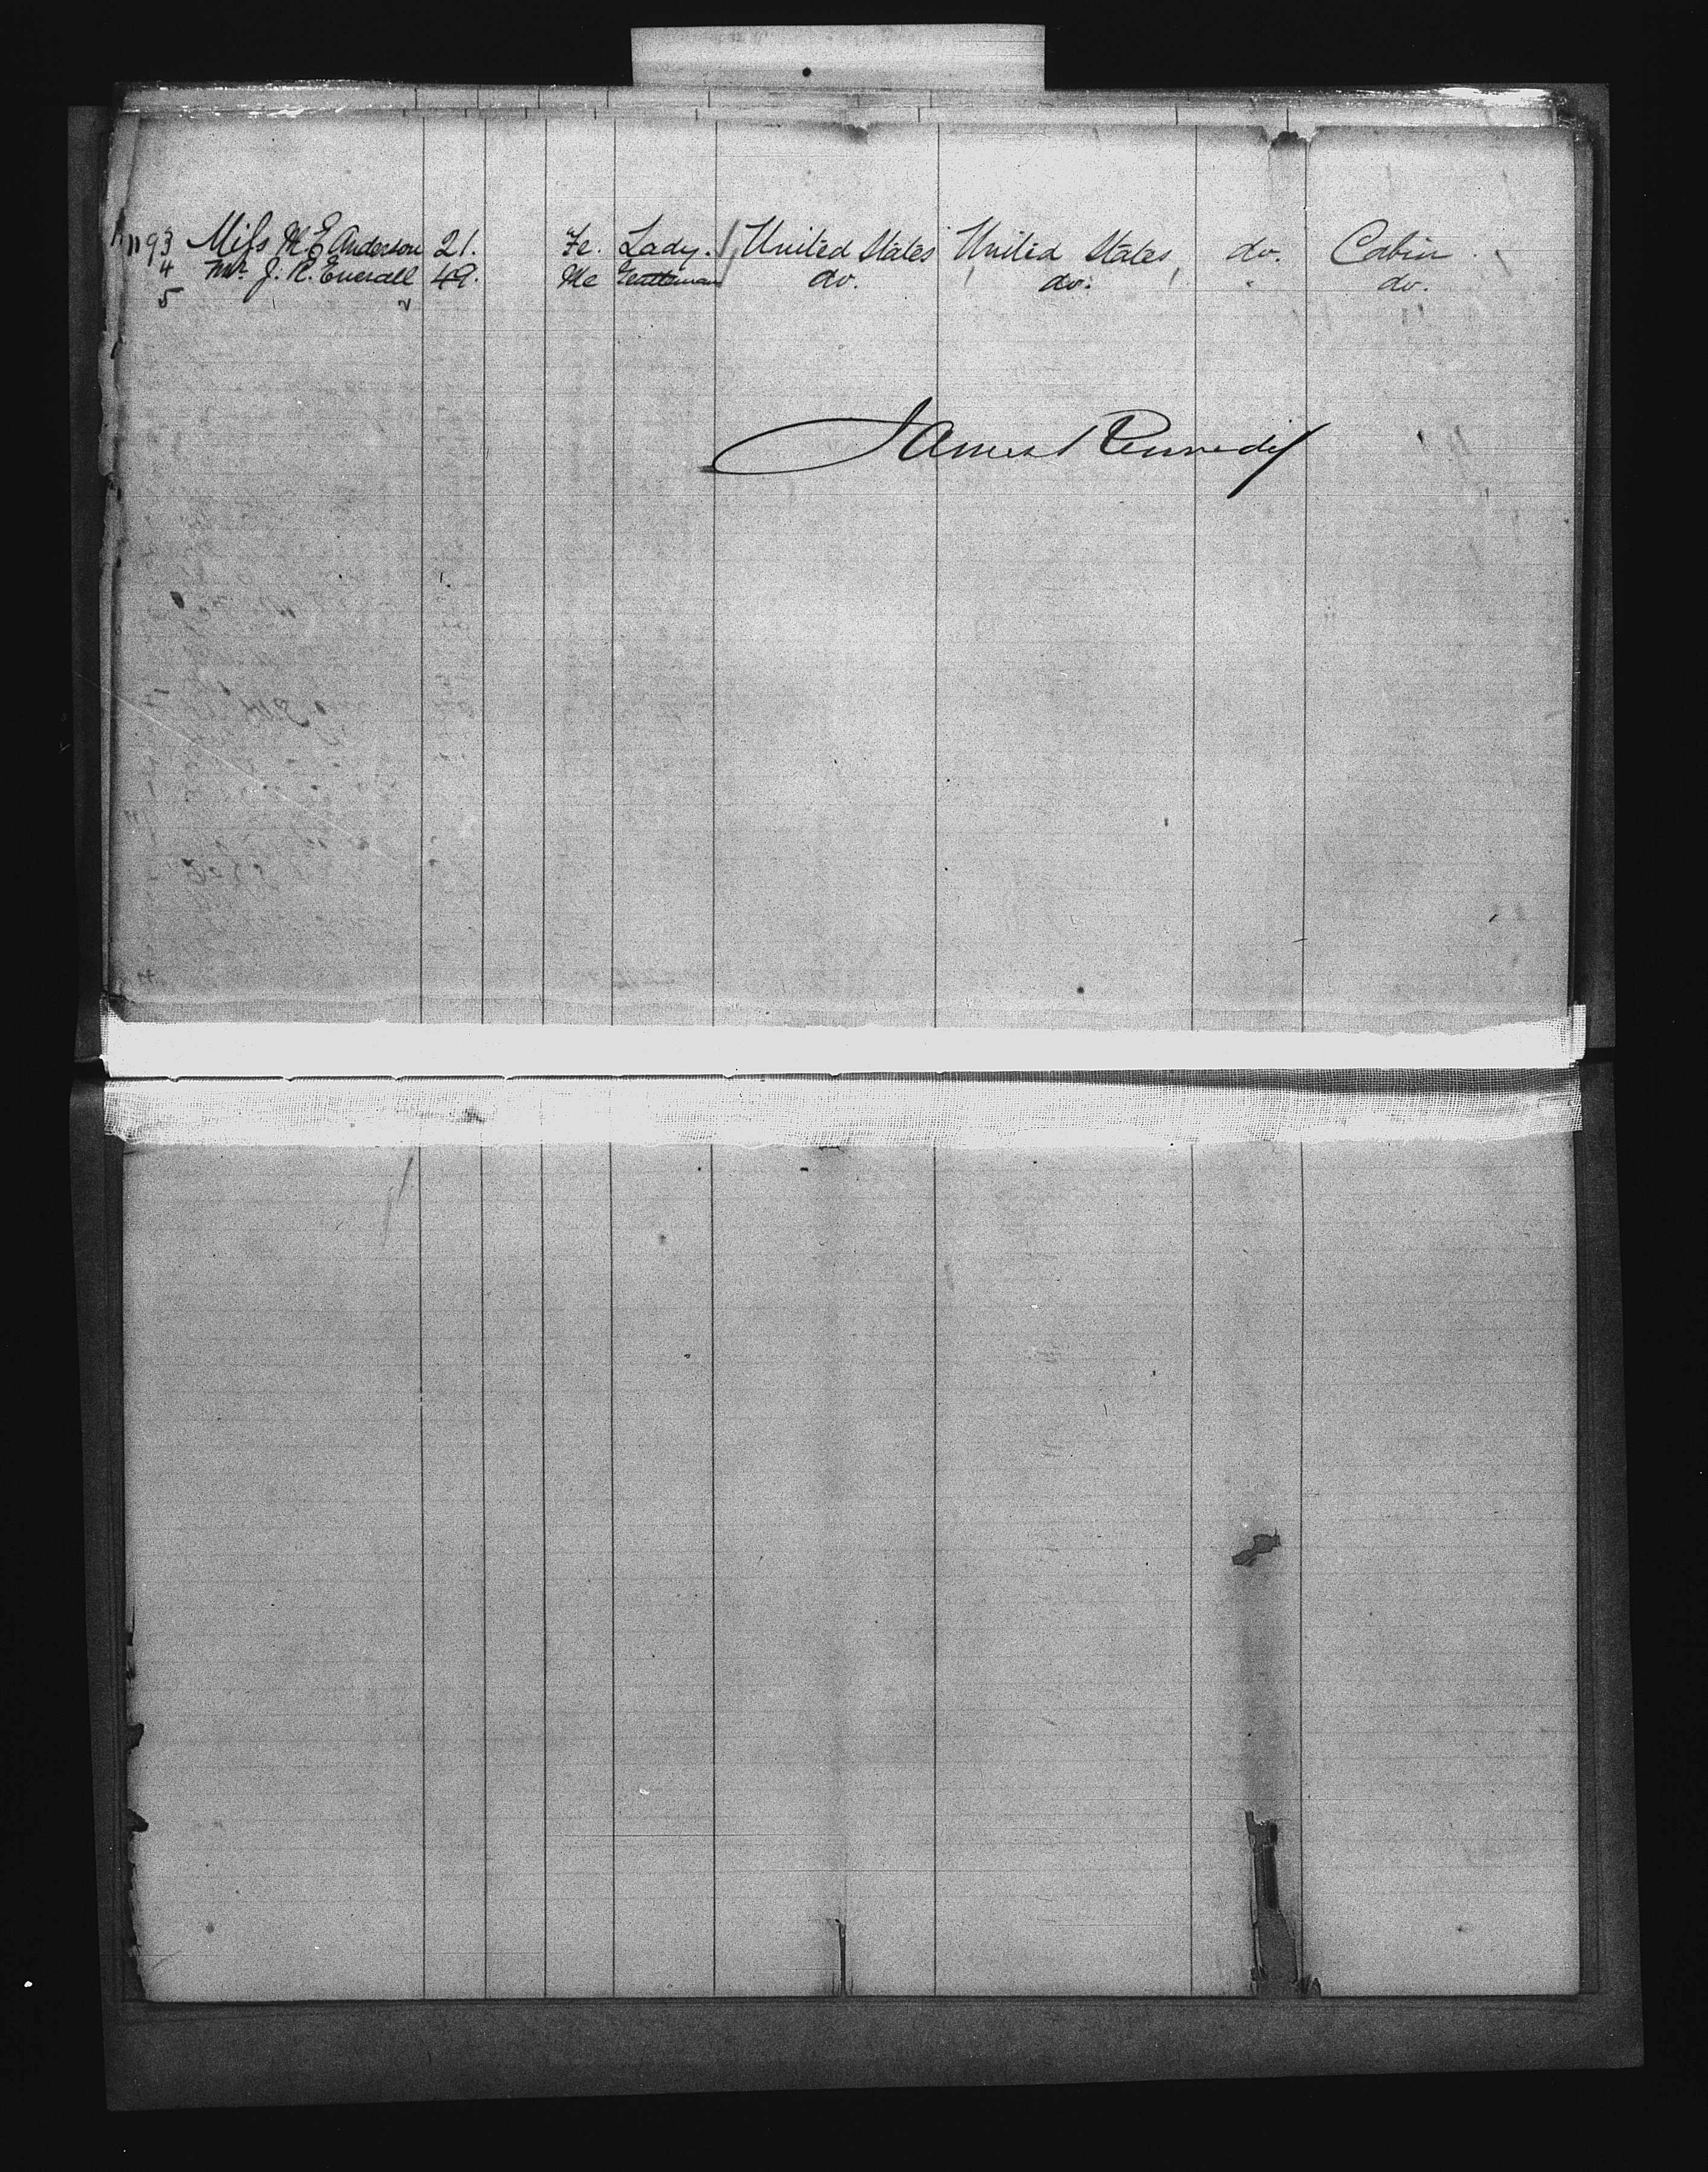 1193 Miss M E Anderson 21. Fe. Lady. United States United States do. Cabin
4 Mr. J. R. Everall 49. Me Gentleman do. do. do.
5
James Kennedy